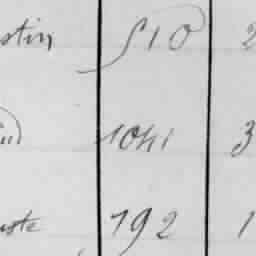 stin 510 2
1041 3
uste 192 1